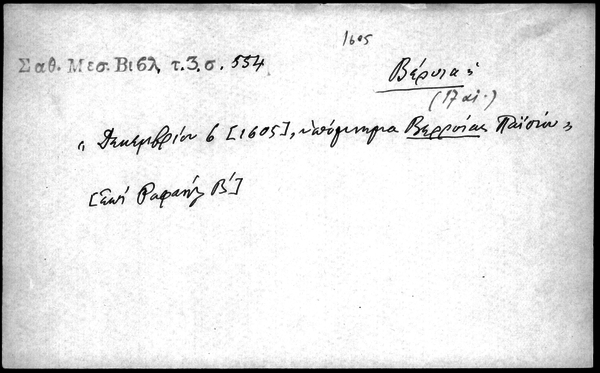 1605
Σαθ. Μεσ. Βιβλ. τ. 3. σ. 554
Βέροια
(17 αἰ.)
« Δεκεμβρίου 6 [1605], ὑπόμνημα Βερροίας Παϊσίου »
[Ἐπὶ Ραφαὴλ Β']